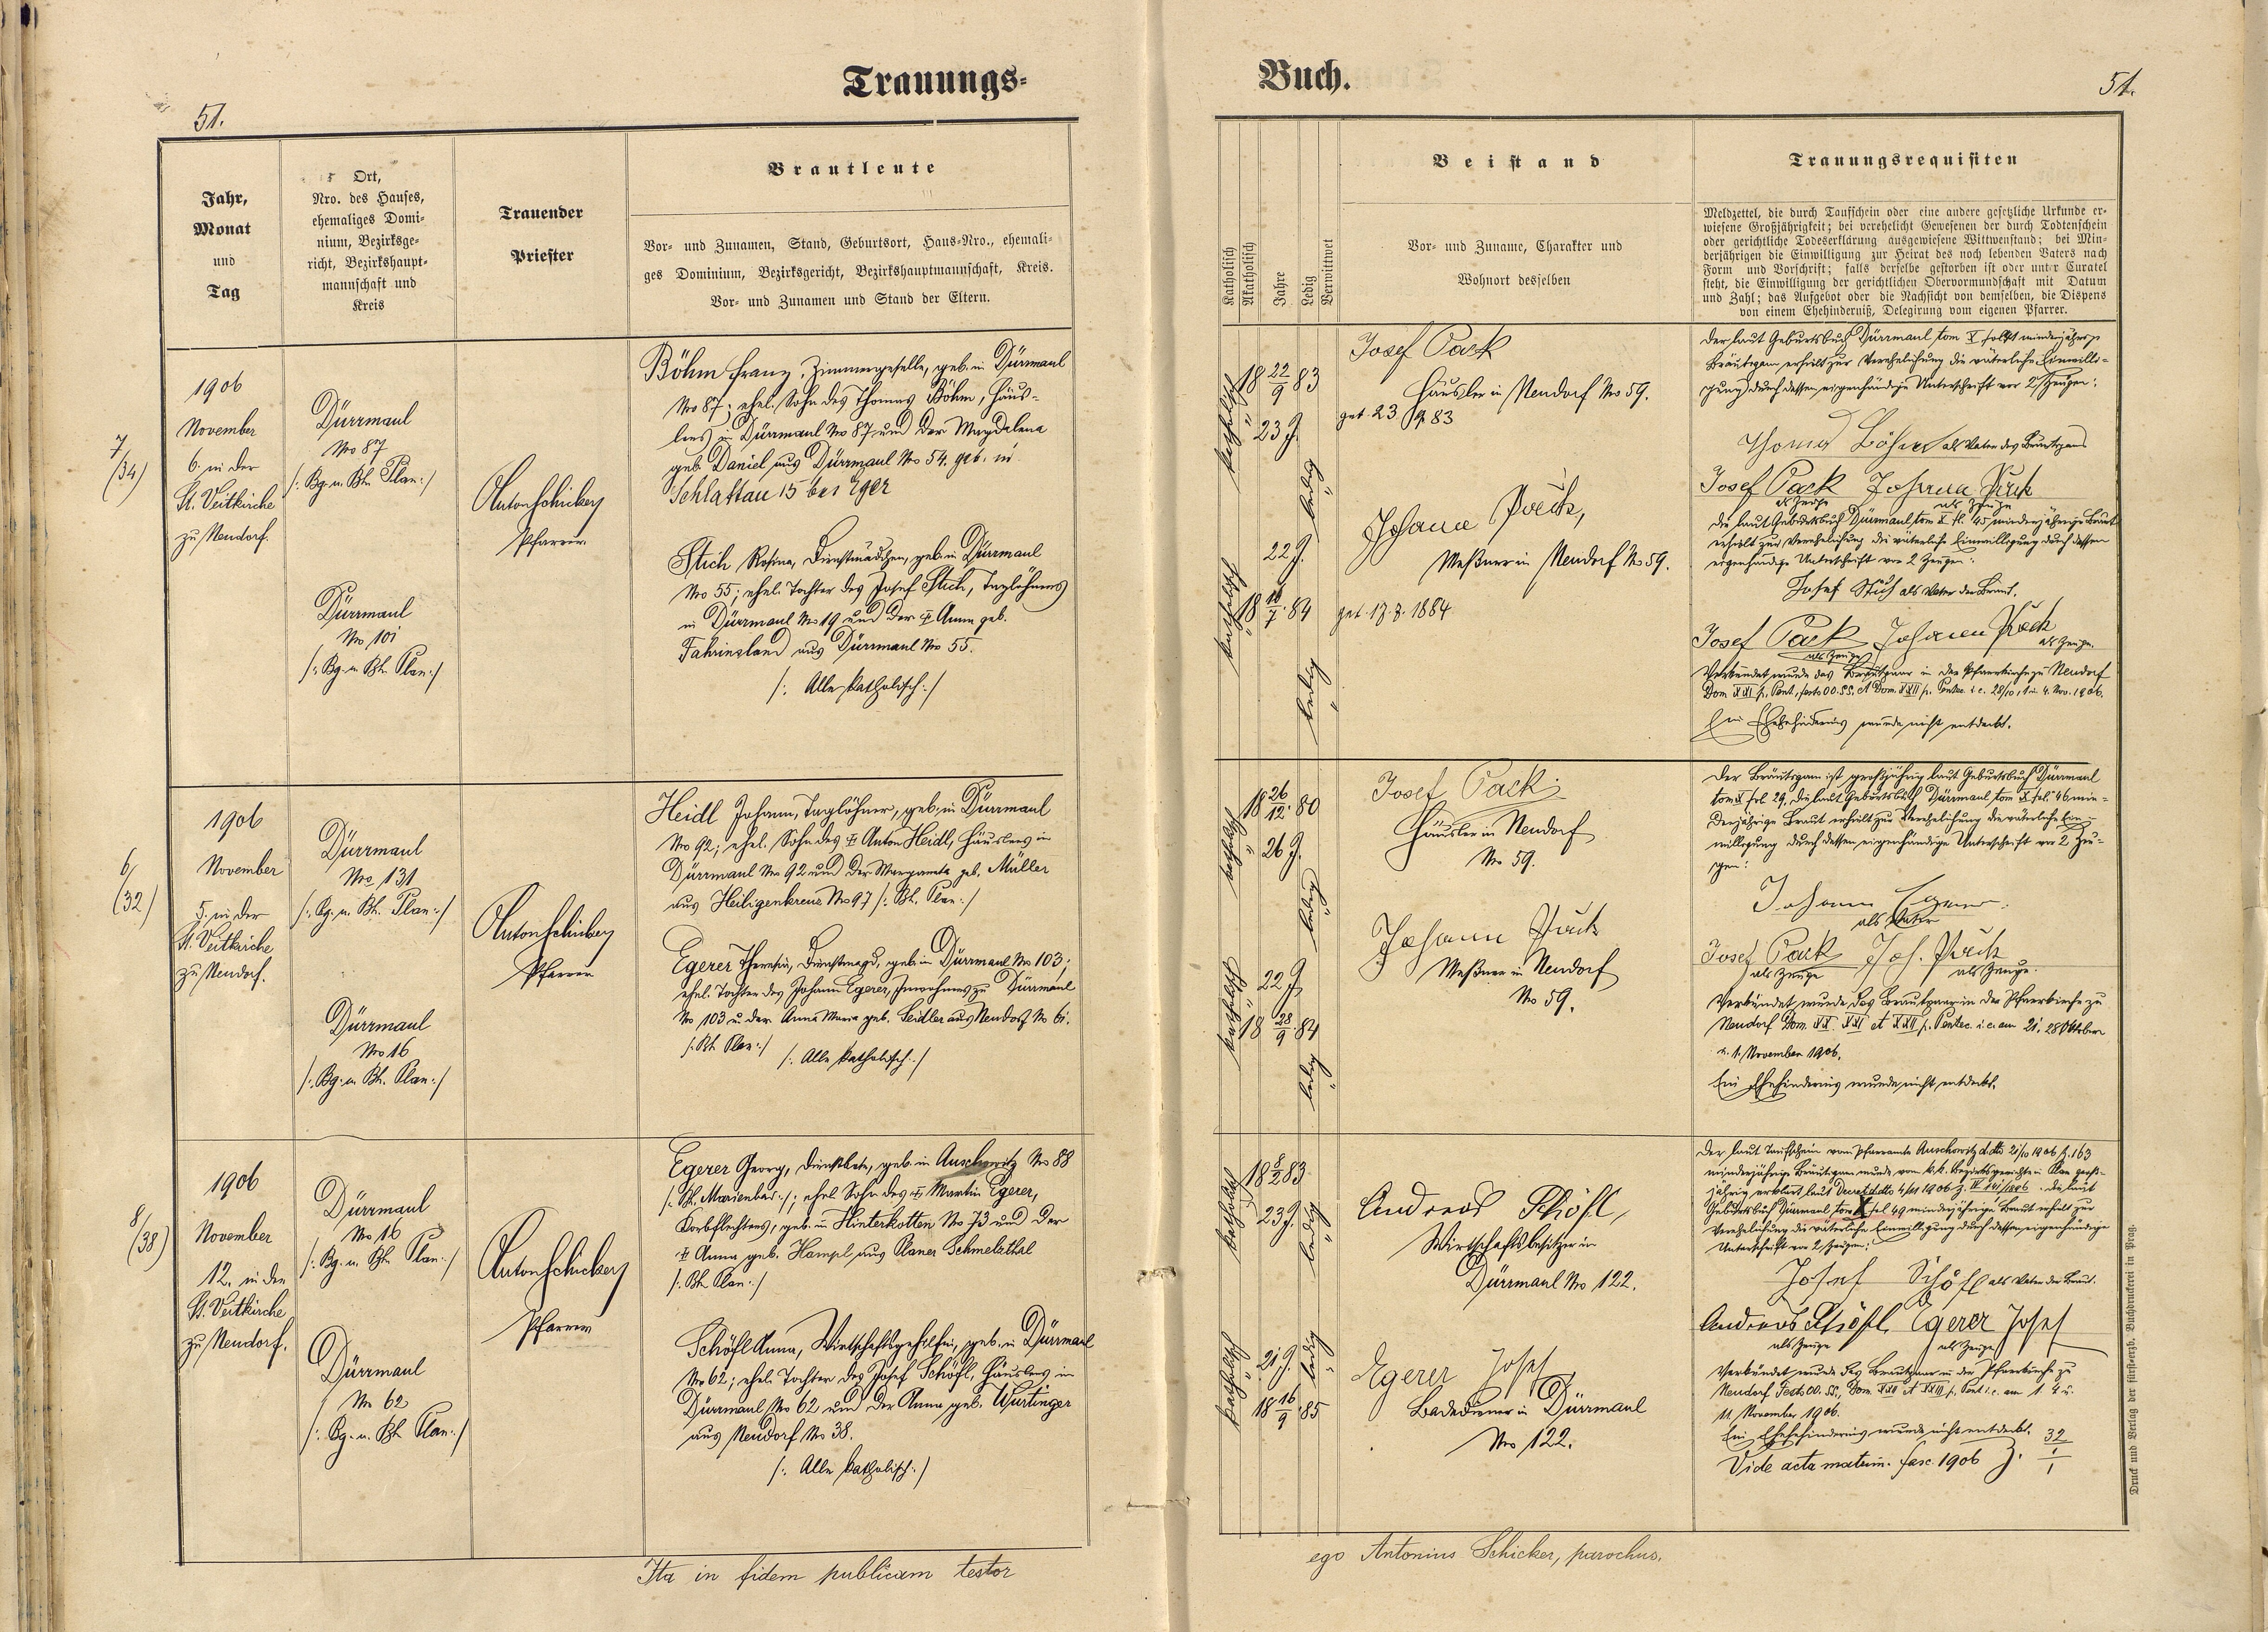 Trauungs-
Buch.
51.
51.
Jahr,
Monat
und
Tag
Ort,
Nro. des Hauses,
ehemaliges Domi-
nium, Bezirksge-
richt, Bezirkshaupt-
mannschaft und
Kreis
Trauender
Priester
Brautleute
Vor- und Zunamen, Stand, Geburtsort, Haus-Nro., ehemali-
ges Dominium, Bezirksgericht, Bezirkshauptmannschaft, Kreis.
Vor- und Zunamen und Stand der Eltern.
Katholisch
Akatholisch
Jahre
Ledig
Verwittwet
Beistand
Vor- und Zuname, Charakter und
Wohnort desselben
Trauungsrequisiten
Meldzettel, die durch Taufschein oder eine andere gesetzliche Urkunde er-
wiesene Großjährigkeit; bei verehelicht Gewesenen der durch Todtenschein
oder gerichtliche Todeserklärung ausgewiesene Wittwenstand; bei Min-
derjährigen die Einwilligung zur Heirat des noch lebenden Vaters nach
Form und Vorschrift; falls derselbe gestorben ist oder unter Curatel
steht, die Einwilligung der gerichtlichen Obervormundschaft mit Datum
und Zahl; das Aufgebot oder die Nachsicht von demselben, die Dispens
von einem Ehehinderniß, Delegirung vom eigenen Pfarrer.
7
(34)
1906
November
6. in der
St. Veitkirche
zu Neudorf.
Dürrmaul
Nro 87
/: Bg. u. Bh. Plan :/
Dürrmaul
Nro 101
/: Bg. u. Bh. Plan :/
Anton Schicker
Pfarrer
Böhm Franz, Zimmergeselle, geb. in Dürrmaul
Nro 87; ehel. Sohn des Thomas Böhm, Häus-
lers in Dürrmaul Nro 87 und der Magdalena
geb. Daniel aus Dürrmaul Nro 54. geb. in
Schlattau 15 bei Eger
Stich Rosina, Dienstmädchen, geb. in Dürrmaul
Nro 55; ehel. Tochter des Josef Stich, Taglöhners
in Dürrmaul Nro 19 und der † Anna geb.
Fahrinsland aus Dürrmaul Nro 55.
/: Alle katholisch :/
katholisch
18 22/9 83
23 J.
ledig
katholisch
22 J.
18 18/7 84
ledig
Josef Pack
Häusler in Neudorf Nro 59.
geb. 23. 9. 83
Johann
Meßner in Neudorf No 59.
geb. 17. 8. 1884
Der laut Geburtsbuch Dürrmaul tom X minderjährige
Bräutigam erhielt zur Verehelichung die väterliche Einwilli-
gung durch dessen eigenhändige Unterschrift vor 2 Zeugen:
Thomas Böhm als Vater des Bräutigams
Josef Pack Johann
als Zeuge als Zeuge
Die laut Geburtsbuch Dürrmaul tom X fl. 45 minderjährige Braut
erhielt zur Verehelichung die väterliche Einwilligung durch dessen
eigenhändige Unterschrift vor 2 Zeugen:
Josef Stich als Vater der Braut.
Josef Pack Johann
als Zeuge als Zeuge.
Verkündet wurde das Brautpaar in der Pfarrkirche zu Neudorf
Dom XXI p. Pent., festo OO.SS. et Dom. XXII p. Pentec. i. e. 28/10, 1 u. 4. Nov. 1906.
Ein Ehehindernis wurde nicht entdeckt.
6
(32)
1906
November
5. in der
St. Veitkirche
zu Neudorf.
Dürrmaul
Nro 131
/: Bg. u. Bh. Plan :/
Dürrmaul
Nro 16
/: Bg. u. Bh. Plan :/
Anton Schicker
Pfarrer
Heidl Johann, Taglöhner, geb. in Dürrmaul
Nro 92; ehel. Sohn des † Anton Heidl, Häuslers in
Dürrmaul Nro 92 und der Margareta geb. Müller
aus Heiligenkreuz Nro 97 /: Bh. Plan :/
Egerer Theresia, Dienstmagd, geb. in Dürrmaul Nro 103;
ehel. Tochter des Johann Egerer, Inwohners zu Dürrmaul
No 103 u. der Anna Maria geb. Seidler aus Neudorf No 61.
/: Bh. Plan :/ /: Alle katholisch :/
katholisch
18 26/12 80
26 J.
ledig
katholisch
22 J.
18 28/9 84
ledig
Josef Pack
Häusler in Neudorf
No 59.
Johann
Meßner in Neudorf
No 59.
Der Bräutigam ist großjährig laut Geburtsbuch Dürrmaul
tom X fol. 29, die laut Geburtsbuch Dürrmaul tom X fol. 46 min-
derjährige Braut erhielt zur Verehelichung die väterliche Ein-
willigung durch dessen eigenhändige Unterschrift vor 2 Zeu-
gen:
Johann Egerer
als Vater
Josef Pack Joh.
als Zeuge als Zeuge.
Verkündet wurde das Brautpaar in der Pfarrkirche zu
Neudorf Dom. XX. XXI et XXII p. Pentec. i. e. am 21. 28 Oktober
u. 1. November 1906.
Ein Ehehindernis wurde nicht entdeckt.
8
(38)
1906
November
12. in der
St. Veitkirche
zu Neudorf.
Dürrmaul
Nro 16
/: Bg. u. Bh. Plan :/
Dürrmaul
Nro 62
/: Bg. u. Bh. Plan :/
Anton Schicker
Pfarrer
Egerer Georg, Dienstbote, geb. in Auschowitz Nro 88
/: Bh. Marienbad :/; ehel. Sohn des † Martin Egerer,
Korbflechters, geb. in Hinterkotten No 73 und der
† Anna geb. Hampl aus Planer Schmelzthal
/: Bh. Plan :/
Schöfl Anna, Wirtschaftsgehilfin, geb. in Dürrmaul
Nro 62; ehel. Tochter des Josef Schöfl, Häuslers in
Dürrmaul Nro 62 und der Anna geb. Würtinger
aus Neudorf Nro 38.
/: Alle katholisch :/
katholisch
18 8/2 83.
23 J.
ledig
katholisch
21 J.
18 16/9 85
ledig
Andreas Schöfl,
Wirtschaftsbesitzer in
Dürrmaul Nro 122.
Egerer Josef
Badediener in Dürrmaul
Nro 122.
Der laut Taufschein vom Pfarramte Auschowitz ddto 21/10 1906 Z. 163
minderjährige Bräutigam wurde vom k. k. Bezirksgerichte in Plan groß-
jährig erklärt laut Decret ddto 4/11 1906 Die laut
Geburtsbuch Dürrmaul tom X fol 49 minderjährige Braut erhielt zur
Verehelichung die väterliche Einwilligung durch dessen eigenhändige
Unterschrift vor 2 Zeugen:
Josef Schöfl als Vater der Braut.
Andreas Schöfl Egerer Josef
als Zeuge als Zeuge
Verkündet wurde das Brautpaar in der Pfarrkirche zu
Neudorf Festo OO. SS., Dom. XXII et XXIII p. Pent i. e. am 1. 4 u.
11. November 1906.
Ein Ehehindernis wurde nicht entdeckt.
Vide acta matrim. fasc. 1906 Z. 32/1
Ita in fidem publicam testor
ego Antonius Schicker, parochus.
Druck und Verlag der fürsterzb. Buchdruckerei in Prag.